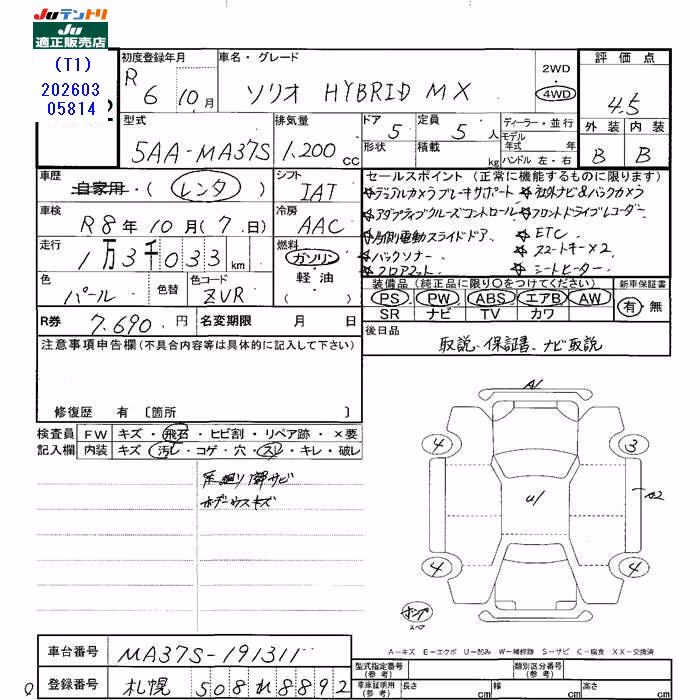 JUテントリ
JU
適正販売店
(T1)
202603
05814
初度登録年月
R 6 10月
車名・グレード
ソリオ HYBRID MX
2WD
・
4WD
評価点
4.5
外装 内装
B B
型式
5AA-MA37S
排気量
1,200cc
ドア 5
形状
定員 5人
積載 kg
ディーラー・並行
モデル
年式 年
ハンドル 左・右
車歴
自家用・(レンタ)
シフト
IAT
車検
R8年10月(7日)
冷房
AAC
走行
1万3千033km
燃料
ガソリン
軽油
( )
色
パール
色替
色コード
ZVR
セールスポイント(正常に機能するものに限ります)
☆デュアルカメラブレーキサポート ☆社外ナビ&バックカメラ
☆アダプティブクルーズコントロール ☆フロントドライブレコーダー
☆両側電動スライドドア ☆ETC
☆バックソナー ☆スマートキー×2
☆フロアマット ☆シートヒーター
装備品(純正品に限り○をつけてください)
PS PW ABS エアB AW
SR ナビ TV カワ
新車保証書
有・無
R券 7,690円 名変期限 月 日
後日品
取説、保証書、ナビ取説
注意事項申告欄(不具合内容等は具体的に記入して下さい)
修復歴 有〔箇所 〕
検査員
記入欄
FW キズ・飛石・ヒビ割・リペア跡・×要
内装 キズ・汚レ・コゲ・穴・スレ・キレ・破レ
足廻り下部サビ
ボデーウスキズ
A1
4
3
U1
A2
4
4
ポンプ
スペア
A-キズ E-エクボ U-凹み W-補修跡 S-サビ C-腐食 XX-交換済
車台番号 MA37S-191311
登録番号 札幌 508 れ 8892
型式指定番号
(参考)
類別区分番号
(参考)
車庫証明用
(参考)
長さ cm 幅 cm 高さ cm